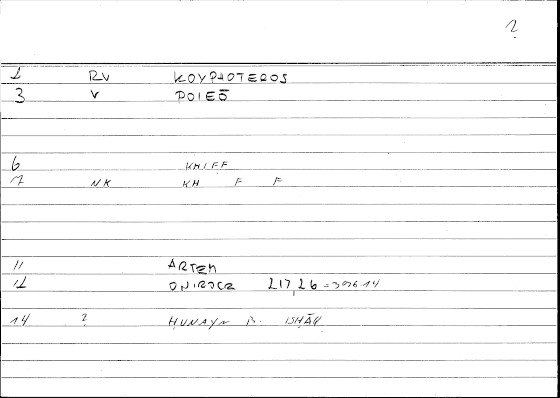 ?
1 RV KOYPHOTEROS
3 V POIEŌ
6 KHIFF
7 NK KH F F
11 ARTEM
12 ONIROCR 217,26 = 396.14
14 ? HUNAYN B. ISHĀQ